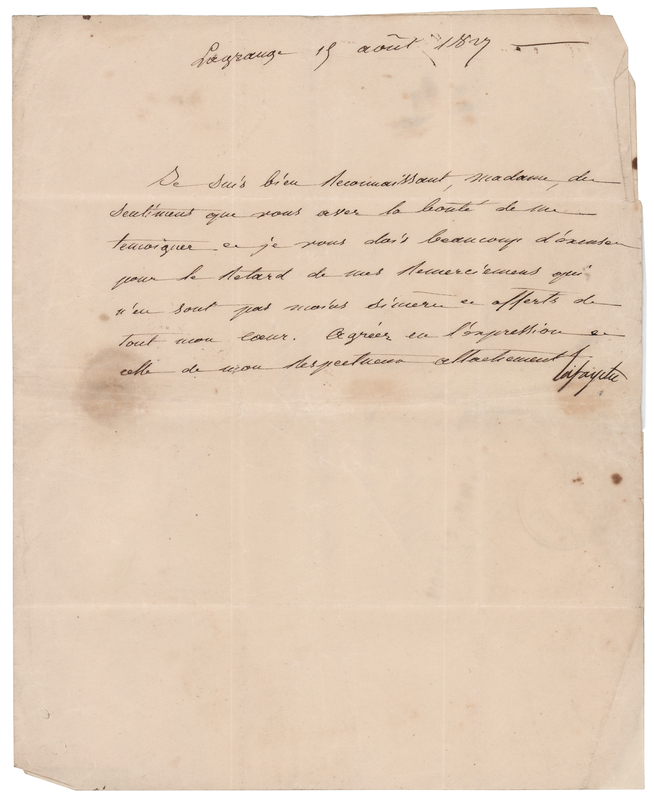 Lagrange 15 août 1827
Je suis bien Reconnaissant, Madame, des
sentimens que vous avez la bonté de me
temoigner et je vous dois beaucoup d'excuses
pour le Retard de mes Remerciemens qui
n'en sont pas moins sinceres et offerts de
tout mon cœur. Agréez en l'expression et
celle de mon Respectueux attachement
Lafayette